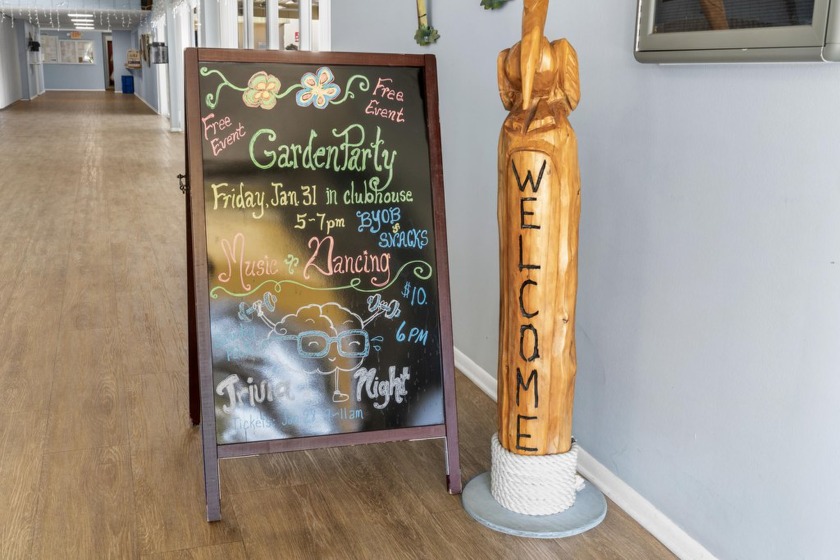 Free Event
Free Event
Garden Party
Friday, Jan 31 in clubhouse
5-7pm BYOB
& SNACKS
Music & Dancing
$10.
6PM
Trivia Night
Tickets: 9-11am
WELCOME